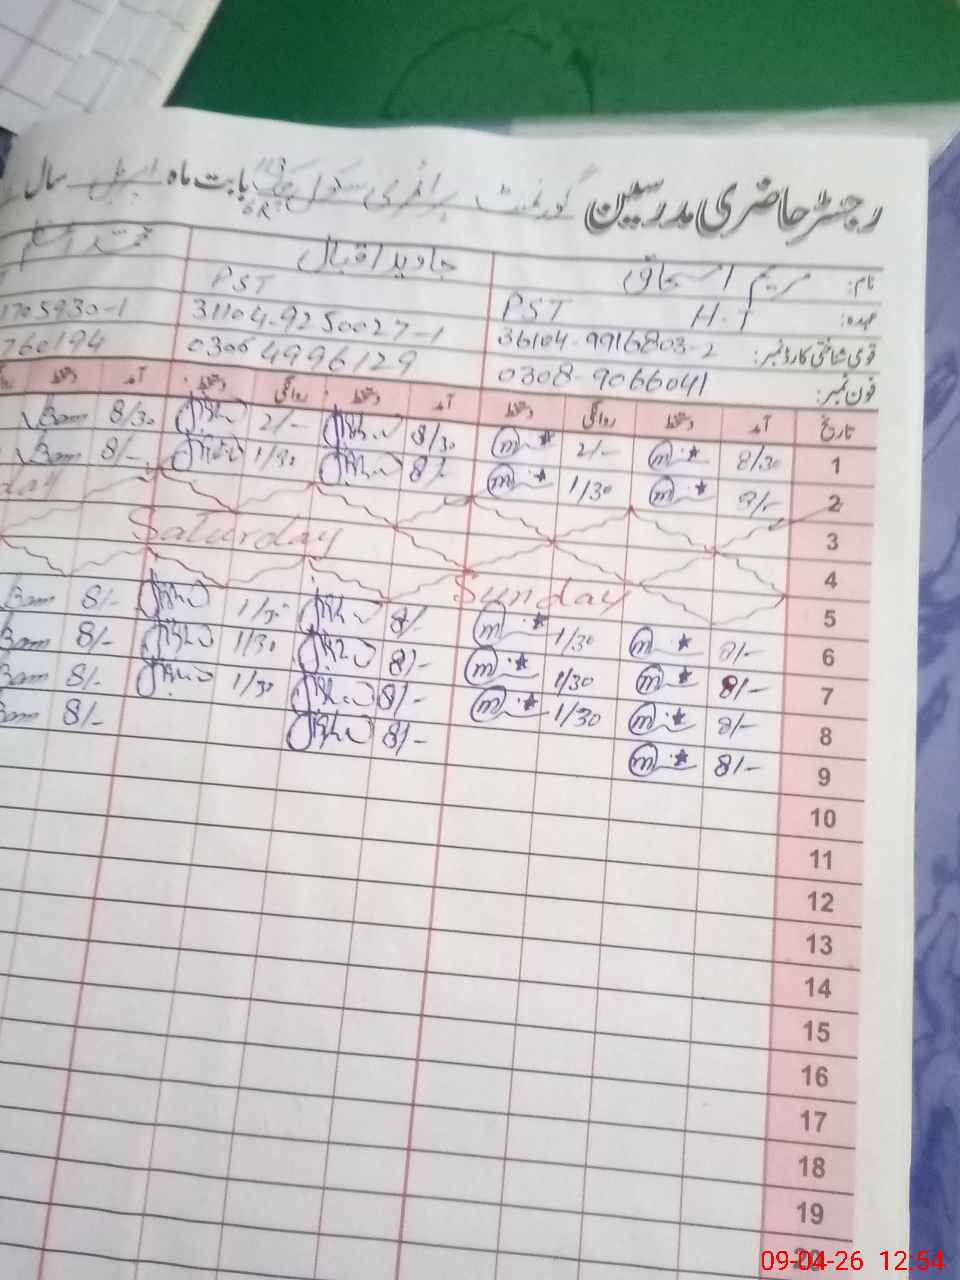 رجسٹر حاضری مدرسین گورنمنٹ پرائمری سکول بابت ماہ اپریل سال
نام: مریم اسحاق جاوید اقبال محمد اسلم
عہدہ: H.T PST PST
قومی شناختی کارڈ نمبر: 36104-9916803-2 31104-9250027-1 1705930-1
فون نمبر: 0308-9066041 03064996129 760194
تاریخ آمد دستخط روانگی دستخط آمد دستخط روانگی دستخط آمد دستخط
1 8/30 m 2/- m 8/30 2/- 8/30
2 8/- m 1/30 m 8/- 1/30 8/-
3 day
4 Saturday
5 Sunday
6 8/- m 1/30 m 8/- 1/30 8/-
7 8/- m 1/30 m 8/- 1/30 8/-
8 8/- m 1/30 m 8/- 1/30 8/-
9 8/- m 8/- 8/-
10
11
12
13
14
15
16
17
18
19
20
09-04-26 12:54